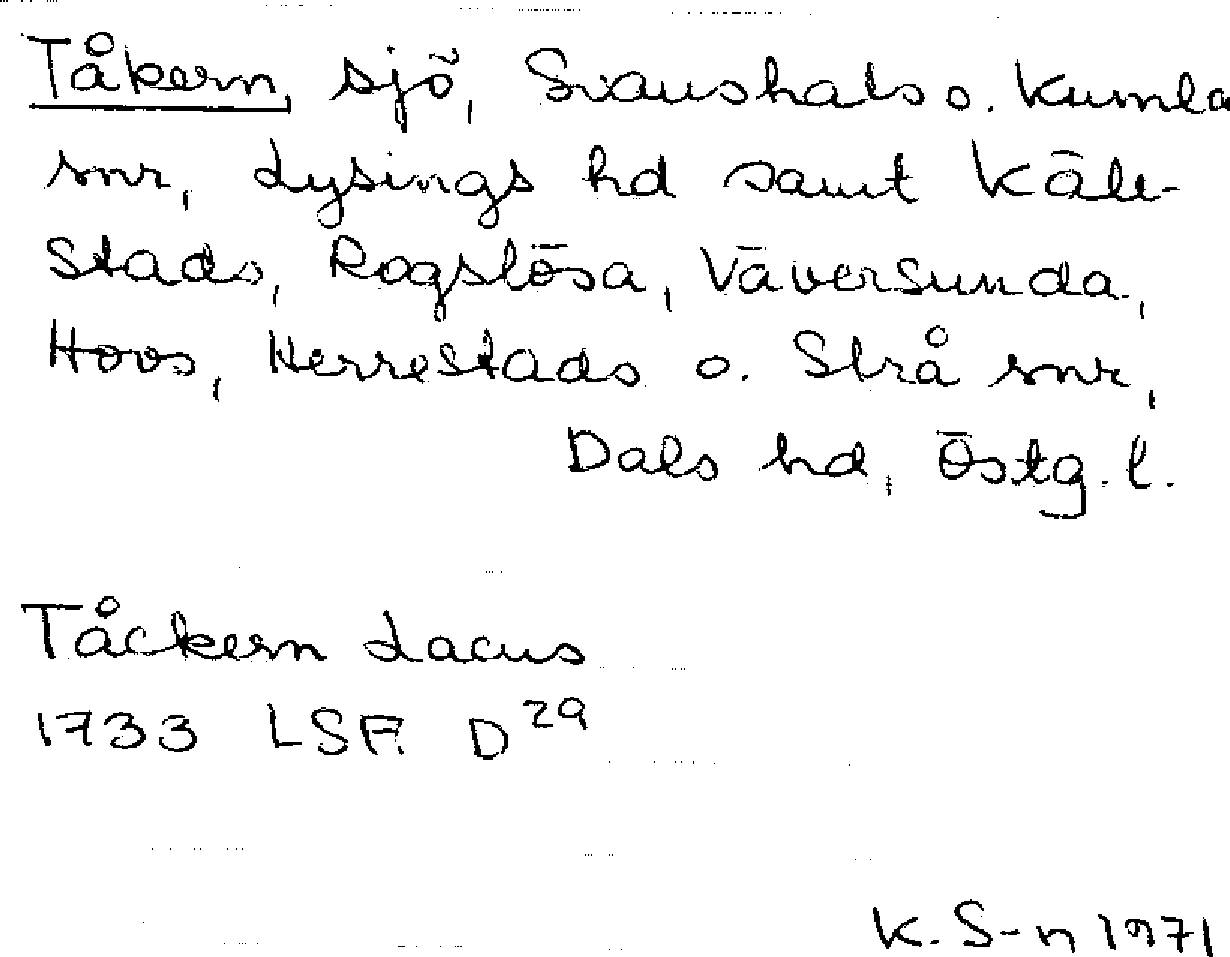 Tåkern, sjö, Svanshals o. Kumla
snr, Lysings hd samt Käll-
stads, Rogslösa, Väversunda,
Hovs, Herrestads o. Strå snr,
Dals hd, Östg. l.
Tåckern Lacus
1733 LSA D 29
K. S-n 1971